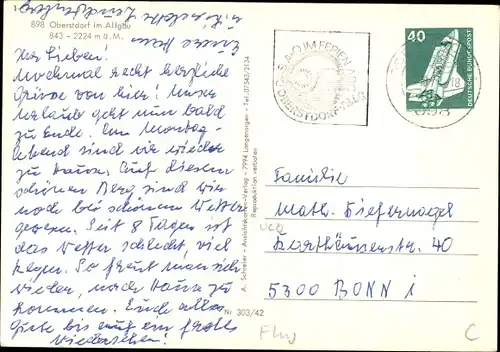 898 Oberstdorf im Allgäu
843 - 2224 m ü.M.
Ihr Lieben!
Nochmal recht herzliche
Grüße von hier! Unser
Urlaub geht nun bald
zu Ende. Am Montag-
Abend sind wir wieder
zu Hause. Auf diesem
schönen Berg sind wir
noch bei schönem Wetter
gewesen. Seit 8 Tagen ist
das Wetter schlecht, viel
Regen. So freut man sich
wieder, nach Hause zu
kommen. Euch alles
Gute bis auf ein frohes
Wiedersehen!
A. Schreier - Ansichtskarten-Verlag - 7994 Langenargen - Tel. 07543/2134
Reproduktion verboten
Nr 303/42
IM FERIEN
OBERSTDORF
40
DEUTSCHE BUNDESPOST
18
Familie
Math. Kiefernagel
Karthäuserstr. 40
5300 BONN 1
Flug
C